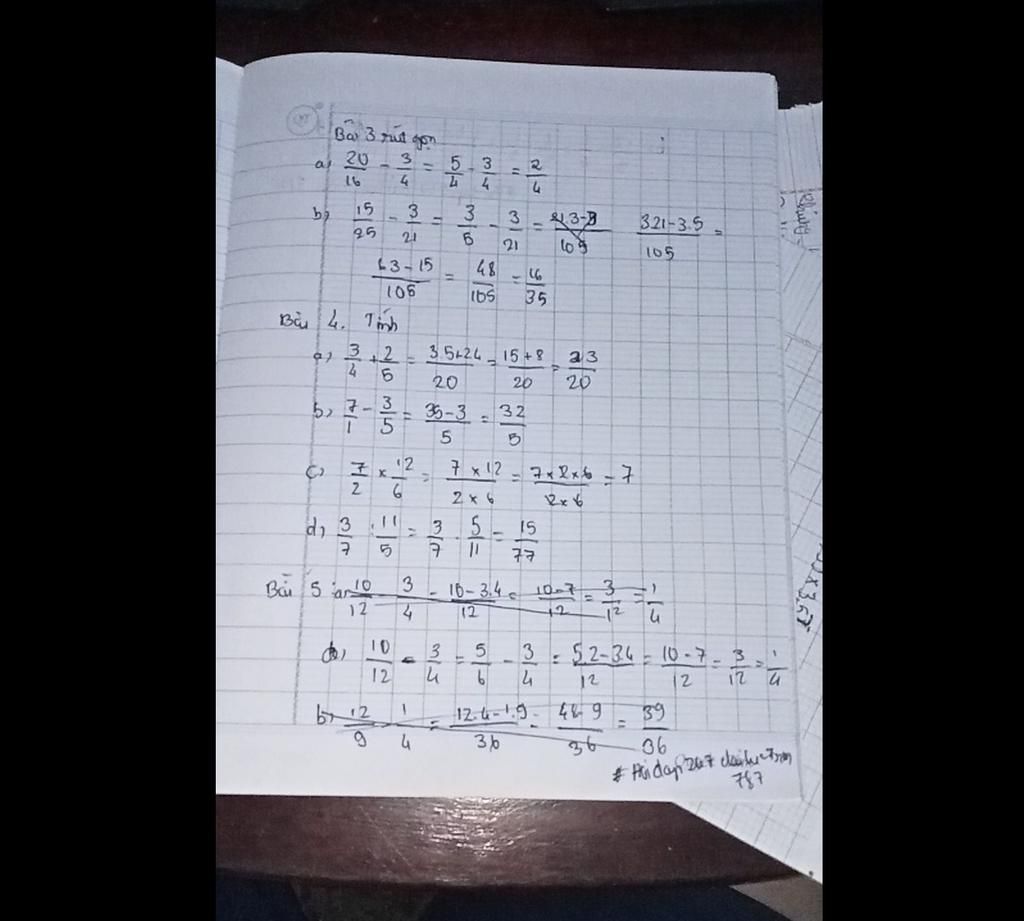 Bài 3 rút gọn
a, 20/16 - 3/4 = 5/4 - 3/4 = 2/4
b, 15/25 - 3/21 = 3/5 - 3/21 = 21.3-3/105 3.21-3.5/105 =
63-15/105 = 48/105 = 16/35
Bài 4. Tính
a, 3/4 + 2/5 = 3.5+2.4/20 = 15+8/20 = 23/20
b, 7/1 - 3/5 = 35-3/5 = 32/5
c, 7/2 x 12/6 = 7 x 12/2 x 6 = 7 x 2 x 6/2 x 6 = 7
d, 3/7 : 11/5 = 3/7 . 5/11 = 15/77
Bài 5 a, 10/12 3/4 = 10-3.4/12 = 10-7/12 = 3/12 = 1/4
a, 10/12 - 3/4 = 5/6 - 3/4 = 5.2-3.4/12 = 10-7/12 = 3/12 = 1/4
b, 12/9 1/4 = 12.4-1.9/36 = 48-9/36 = 39/36
# Hỏi đáp 247
787